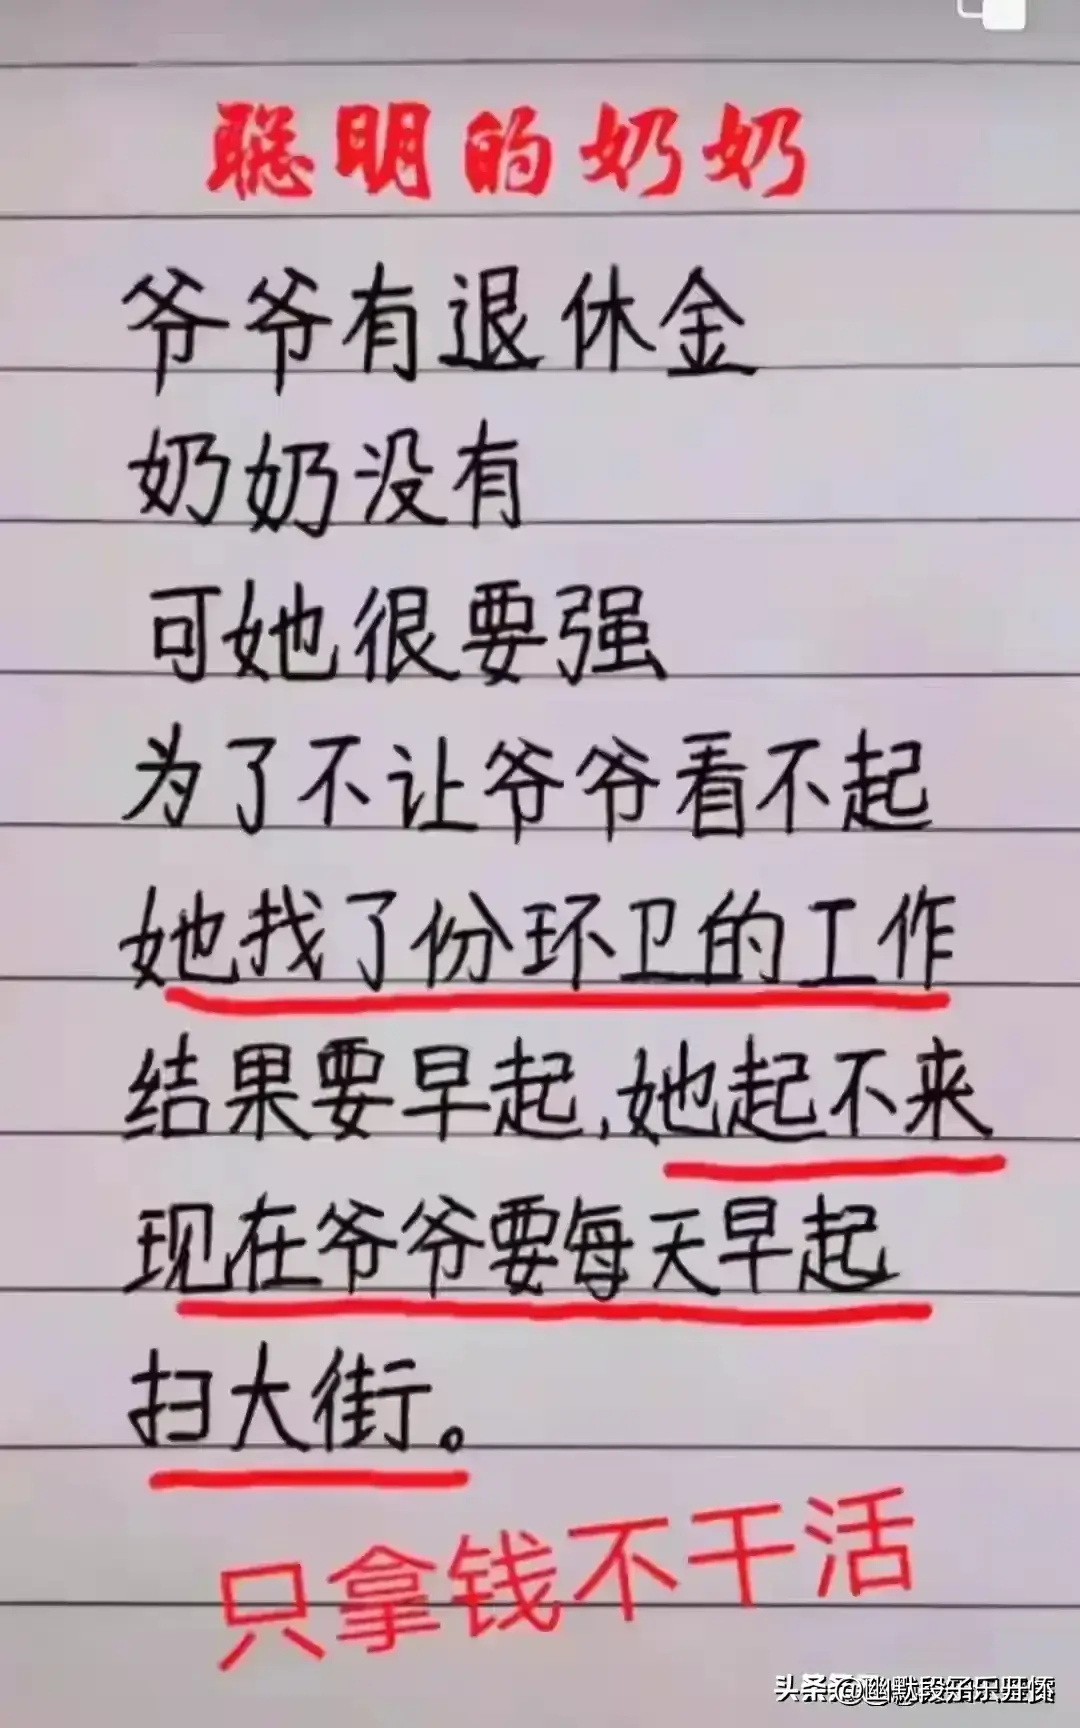 聪明的奶奶
爷爷有退休金
奶奶没有
可她很要强
为了不让爷爷看不起
她找了份环卫的工作
结果要早起,她起不来
现在爷爷要每天早起
扫大街。
只拿钱不干活
头条 @幽默段子乐开怀